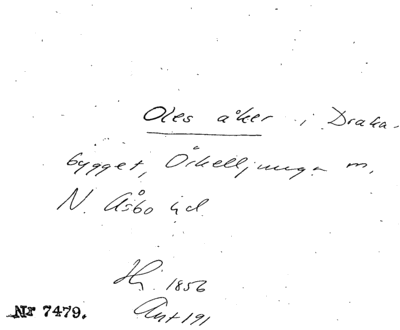 Oles åker i Draka-
bygget, Örkelljunga m,
N. Åsbo hd.
Hj. 1856
Ant 191
Nr 7479.